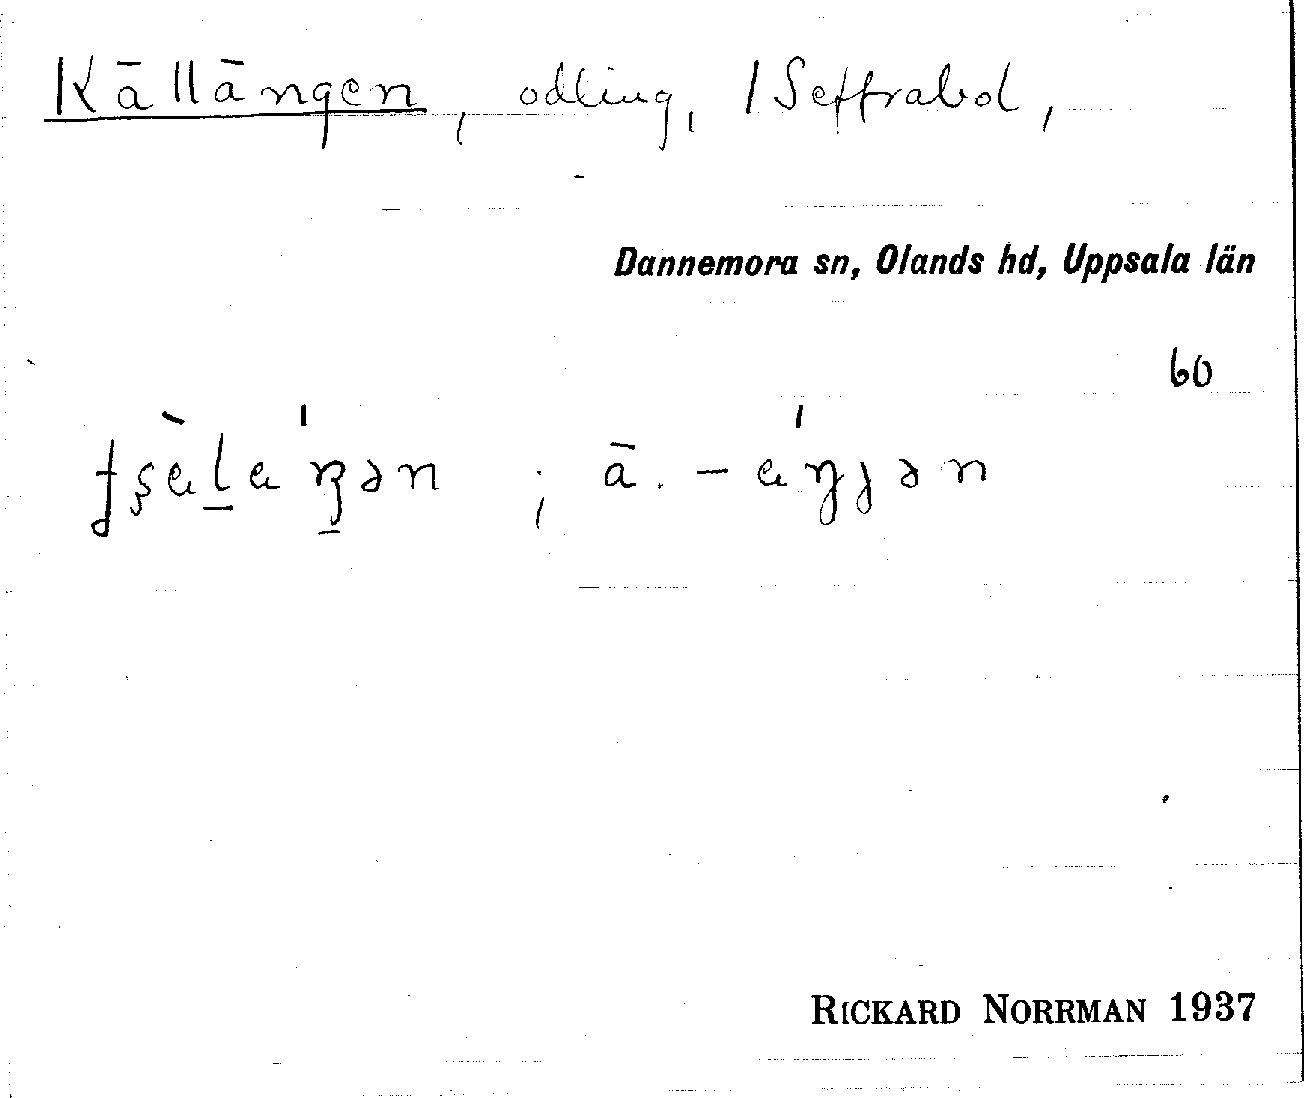 Källängen, odling, /Seffrabol,
Dannemora sn, Olands hd, Uppsala län
60
ä.
RICKARD NORRMAN 1937